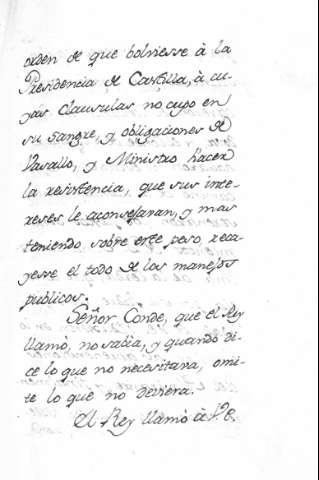 orden de que bolviesse à la
Presidencia de Castilla, à cu-
yas clausulas no cupo en
su sangre, y obligaciones de
Vasallo, y Ministro hacer
la resistencia, que sus inte-
reses le aconsejaran, y mas
teniendo sobre este peso, reca-
yesse el todo de los manejos
publicos.
Señor Conde, que el Rey
llamò, no sabia, y quando di-
ce lo que no necesitana, omi-
te lo que no deviera.
El Rey llamò à V.E.